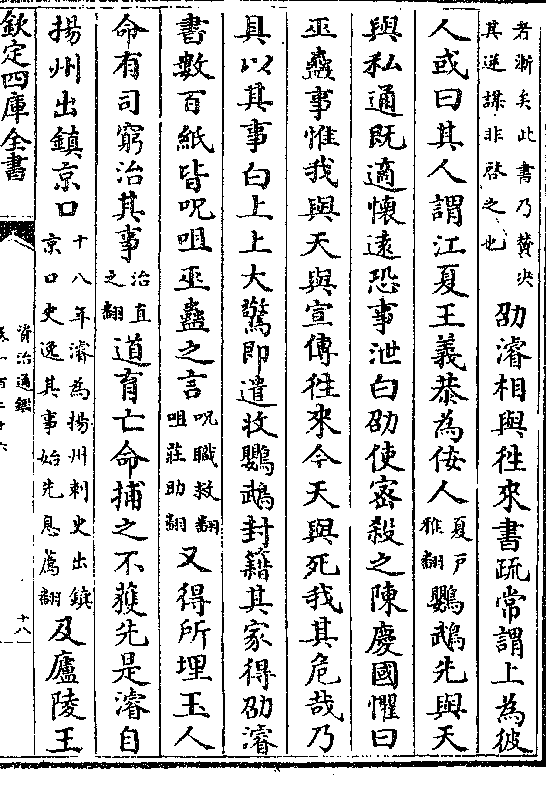 者漸矣此書乃贊決
其逆謀非啓之也
劭濬相與徃來書疏常謂上為彼
人或曰其人謂江夏王義恭為佞人
夏戸
雅翻
鸚鵡先與天
與私通既適懷遠恐事泄白劭使密殺之陳慶國懼曰
巫蠱事惟我與天與宣傳徃來今天與死我其危哉乃
具以其事白上上大驚即遣收鸚鵡封籍其家得劭濬
書數百紙皆呪咀巫蠱之言
呪職救翻
咀莊助翻
又得所埋玉人
命有司窮治其事
治直
之翻
道育亡命捕之不獲先是濬自
揚州出鎮京口
十八年濬為揚州刺史出鎮
京口史逸其事始先悉薦翻
及廬陵王
欽定四庫全書
資治通鑑
卷一百二十六
十八